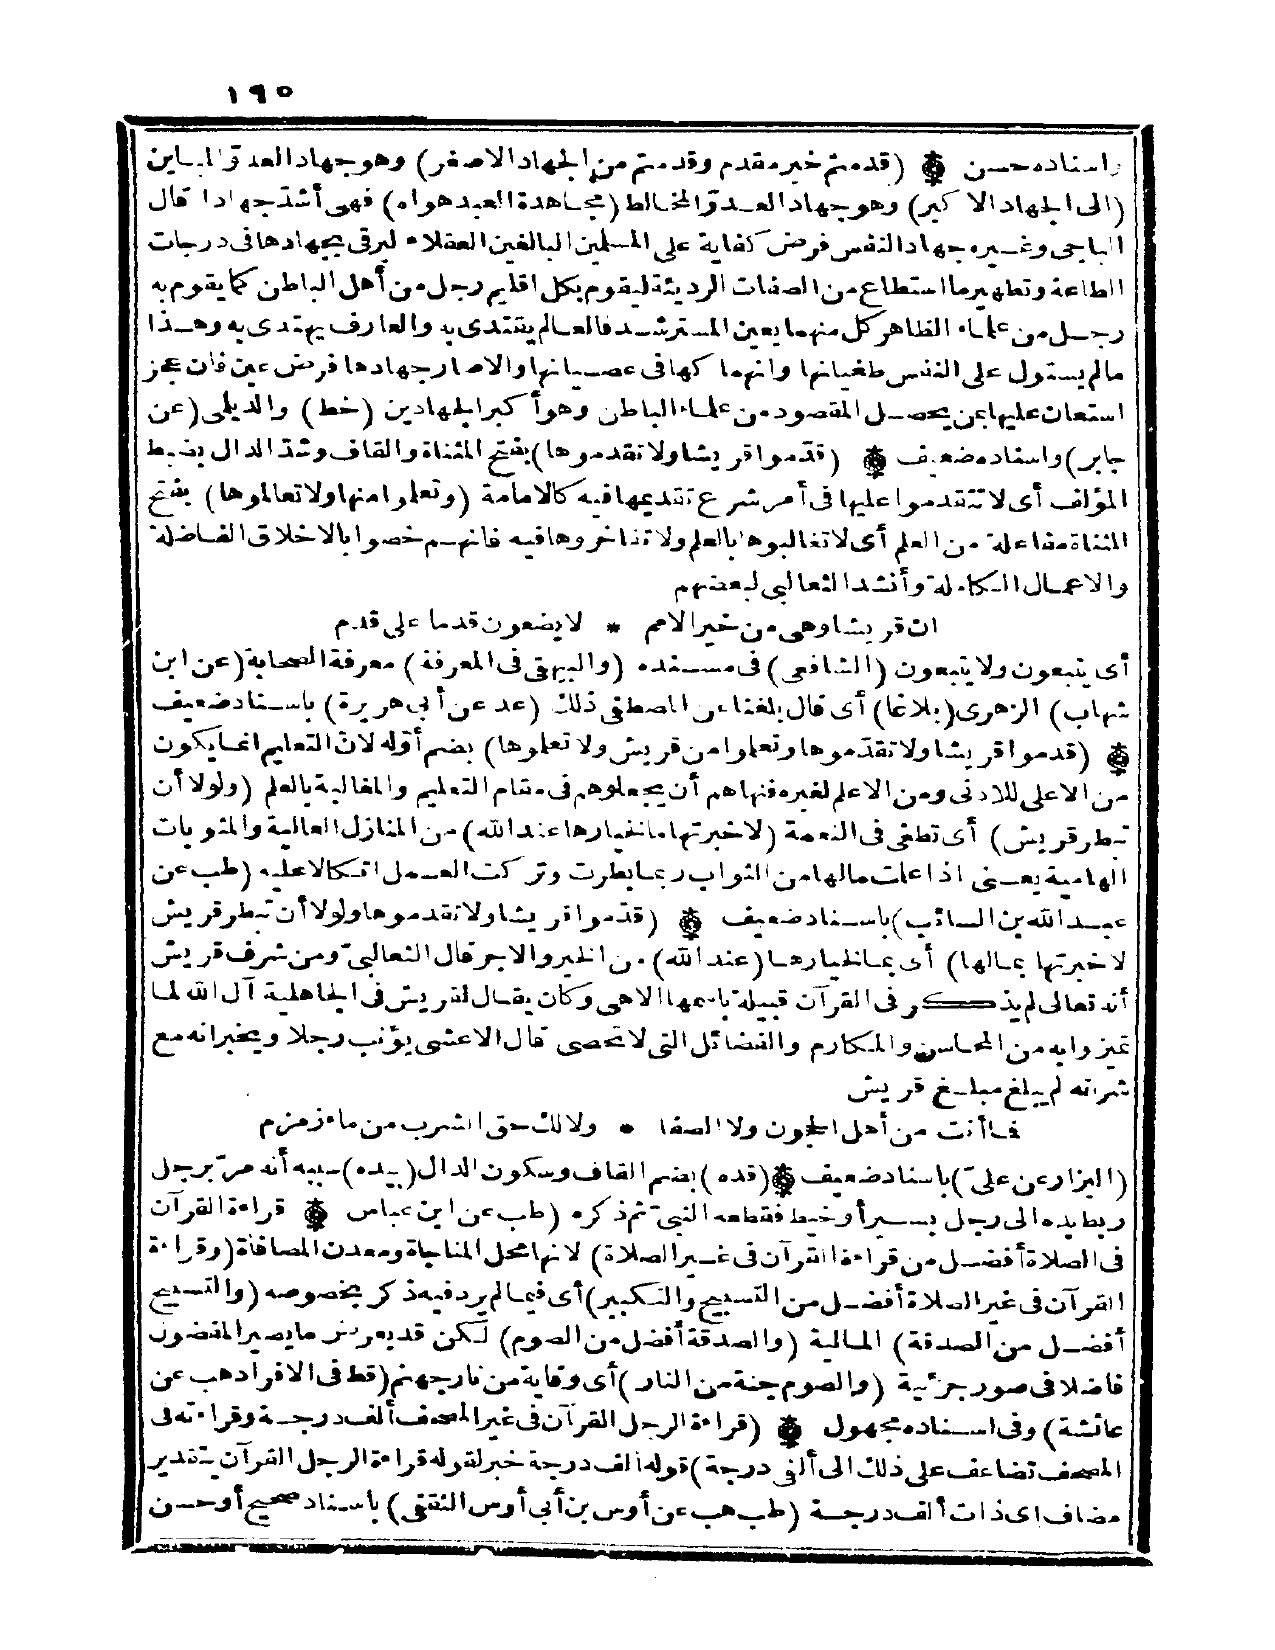 ١٩٥
واسناده حسن ۞ (قدمتم خير مقدم وقدمتم من الجهاد الاصغر) وهو جهاد العدوّ المباين
(الى الجهاد الاكبر) وهو جهاد العدوّ المخالط (مجاهدة العبد هواه) فهى أشدّ جهادا قال
الباجى وغيره جهاد النفس فرض كفاية على المسلمين البالغين العقلاء ليرقى بجهادها فى درجات
الطاعة وتطهير ما استطاع من الصفات الرديئة ليقوم بكل اقليم رجل من أهل الباطن كما يقوم به
رجل من علماء الظاهر كل منهما يعين المسترشد فالعالم يقتدى به والعارف يهتدى به وهذا
مالم يستول على النفس طغيانها وانهماكها فى عصيانها والاصار جهادها فرض عين فان عجز
استعان عليها بمن يحصل المقصود من علماء الباطن وهو أكبر الجهادين (خط) والديلى (عن
جابر) واسناده ضعيف ۞ (قدّموا قريشا ولا تقدموها) بفتح المثناة والقاف وشدّ الدال بضبط
المؤلف أى لا تتقدموا عليها فى أمر شرع تقديمها فيه كالامامة (وتعلوا منها ولا تعالموها) بفتح
المثناة مفاعلة من العلم أى لا تغالبوها بالعلم ولا تفاخروها فيه فانهم خصوا بالاخلاق الفاضلة
والاعمال الكاملة وأنشد الثعالبى لبعضهم
ان قريشا وهى من خير الامم * لا يضعون قدما على قدم
أى يتبعون ولا يتبعون (الشافعى) فى مسنده (والبيهقى فى المعرفة) معرفة الصحابة (عن ابن
شهاب) الزهرى (بلاغا) أى قال بلغنا عن المصطفى ذلك (عد عن أبى هريرة) باسناد ضعيف
۞ (قدموا قريشا ولا تقدّموها وتعلوا من قريش ولا تعلوها) بضم أوّله لانّ التعليم انما يكون
من الاعلى للادنى ومن الاعلم لغيره فنهاهم أن يجعلوهم فى مقام التعليم والمغالبة بالعلم (ولولا أن
تبطر قريش) أى تطغى فى النعمة (لاخبرتها ما لخيارها عند الله) من المنازل العالية والمثوبات
الهامية يعنى اذا علمت مالها من الثواب ربما بطرت وتركت العمل اتكالا عليه (طب عن
عبد الله بن السائب) باسناد ضعيف ۞ (قدّموا قريشا ولا تقدموها ولولا أن تبطر قريش
لاخبرتها بمالها) أى بما لخيارها (عند الله) من الخير والاجر قال الثعالبىّ ومن شرف قريش
أنه تعالى لم يذكر فى القرآن قبيلة باسمها الاهى وكان يقال لقريش فى الجاهلية آل الله لما
تميزوا به من المحاسن والمكارم والفضائل التى لا تحصى قال الاعشى يؤنب رجلا ويخبر انه مع
شرفه لم يبلغ مبلغ قريش
فما أنت من أهل الحجون ولا الصفا * ولا لك حق الشرب من ماء زمزم
(البزار عن علىّ) باسناد ضعيف ۞ (قده) بضم القاف وسكون الدال (بيده) سببه أنه مرّ برجل
ربط يده الى رجل بسير أو خيط فقطعه النبىّ ثم ذكره (طب عن ابن عباس ۞ قراءة القرآن
فى الصلاة أفضل من قراءة القرآن فى غير الصلاة) لانها محل المناجاة ومعدن المصافاة (وقراءة
القرآن فى غير الصلاة أفضل من التسبيح والتكبير) أى فيما لم يرد فيه ذكر بخصوصه (والتسبيح
أفضل من الصدقة) المالية (والصدقة أفضل من الصوم) لكن قد يعرض ما يصير المفضول
فاضلا فى صور جزئية (والصوم جنة من النار) أى وقاية من نار جهنم (قط فى الافراد هب عن
عائشة) وفى اسناده مجهول ۞ (قراءة الرجل القرآن فى غير المصحف ألف درجة وقراءته فى
المصحف تضاعف على ذلك الى ألفى درجة) قوله ألف درجة خبر لقوله قراءة الرجل القرآن بتقدير
مضاف اى ذات ألف درجة (طب هب عن أوس بن أبى أوس الثقفى) بأسناد صحيح أو حسن